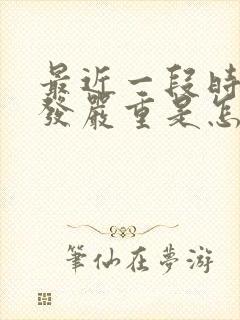 最近一段時
發嚴重是怎
筆仙在夢游